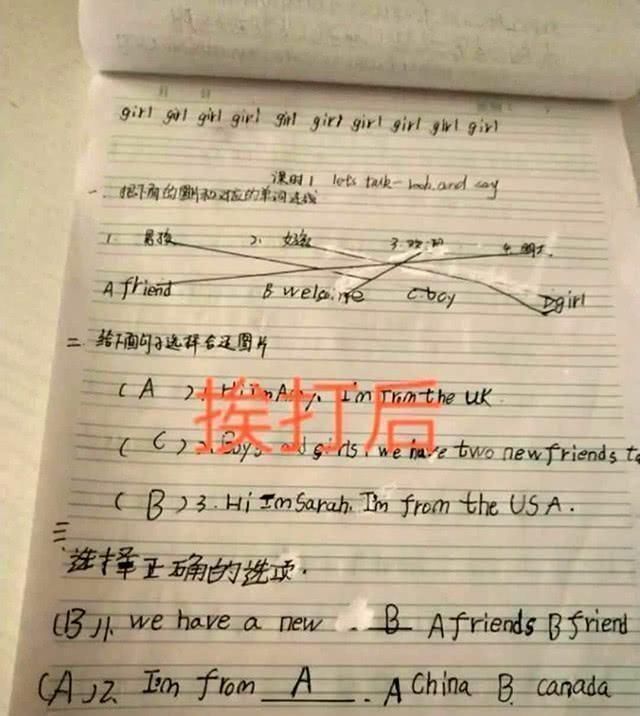 girl girl girl girl girl girl girl girl girl girl
课时1 lets talk-look and say
一、把下面的图片和对应的单词连线
1. 男孩 2. 女孩 3. 欢迎 4. 朋友
A friend B welcome C. boy D girl
二、给下面句子选择合适图片
(A) 1. Hi I'm Amy, I'm from the UK
(C) 2. Boys and girls, we have two new friends to
挨打后
(B) 3. Hi I'm Sarah. I'm from the USA.
三、
选择正确的选项.
(B)1. we have a new B A friends B friend
(A)2. I'm from A . A China B. canada